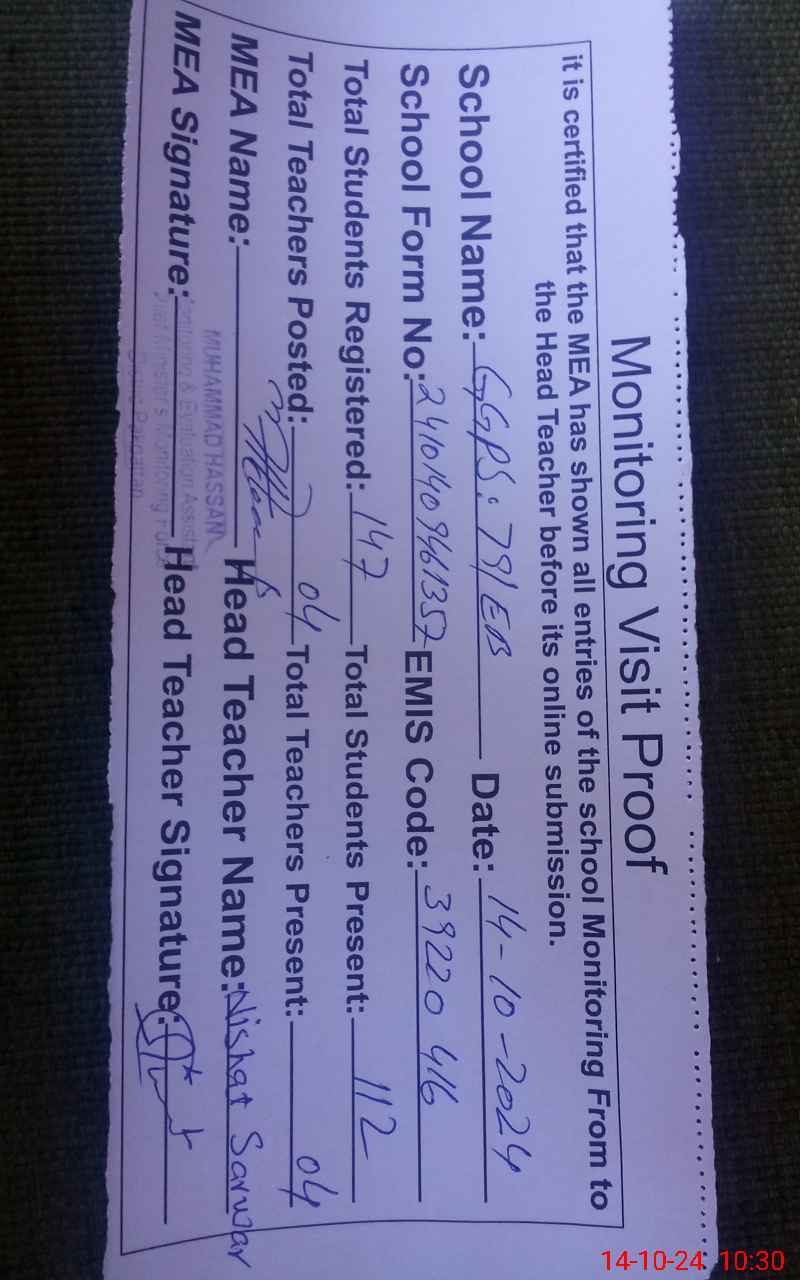 Monitoring Visit Proof
it is certified that the MEA has shown all entries of the school Monitoring From to
the Head Teacher before its online submission.
School Name: GGPS: 79/EB Date: 14-10-2024
School Form No: 24101409461357 EMIS Code: 39220416
Total Students Registered: 147 Total Students Present: 112
Total Teachers Posted: 04 Total Teachers Present: 04
MEA Name: Head Teacher Name: Nishat Sarwar
MUHAMMAD HASSAN
MEA Signature: Head Teacher Signature:
Monitoring & Evaluation Assistant
Chief Minister's Monitoring Force
Pakpattan
14-10-24 10:30